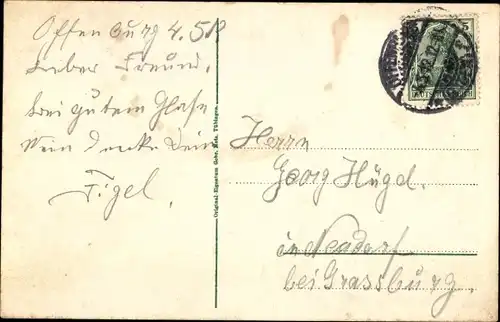 Offenburg 4. 5. 18
Lieber Freund,
bei gutem Glase
Wein denke Dein
Figel.
Original-Eigentum Gebr. Metz, Tübingen.
Herrn
Georg Hügel.
in Neudorf
bei Grassburg.